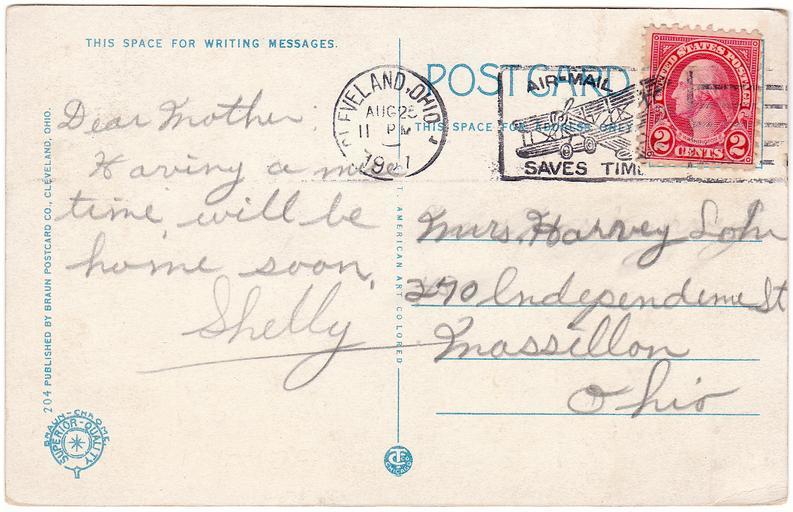 THIS SPACE FOR WRITING MESSAGES.
POSTCARD
THIS SPACE FOR ADDRESS ONLY
CLEVELAND, OHIO
AUG 25
11 PM
AIR-MAIL
SAVES TIME
UNITED STATES POSTAGE
WASHINGTON
2 CENTS 2
Dear Mother:
Having a nice
time, will be
home soon,
Shelly
Mrs. Harvey
270 Independence St
Massillon
Ohio
204 PUBLISHED BY BRAUN POSTCARD CO., CLEVELAND, OHIO.
T. AMERICAN ART COLORED
BRAUN-CHROME
SUPERIOR-QUALITY
CHICAGO